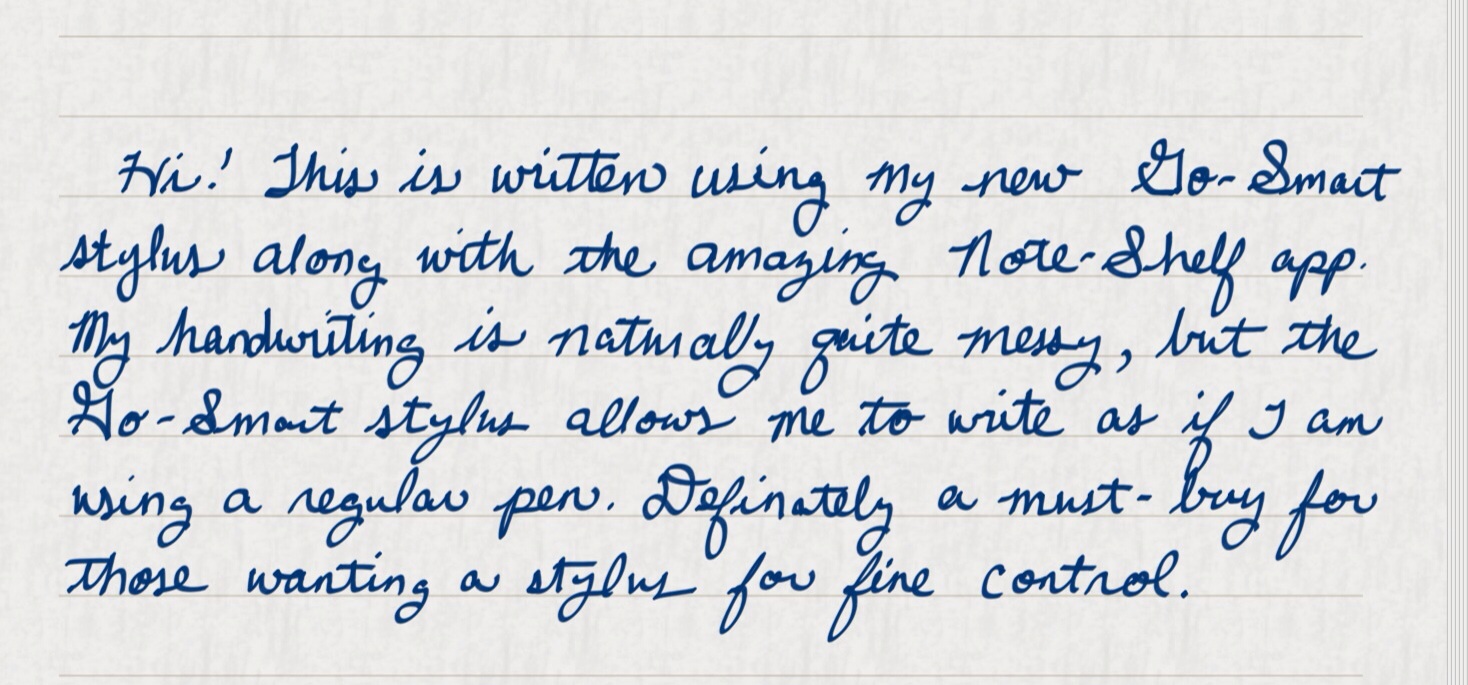 Hi! This is written using my new Go-Smart
stylus along with the amazing Note-Shelf app.
My handwriting is naturally quite messy, but the
Go-Smart stylus allows me to write as if I am
using a regular pen. Definately a must-buy for
those wanting a stylus for fine control.